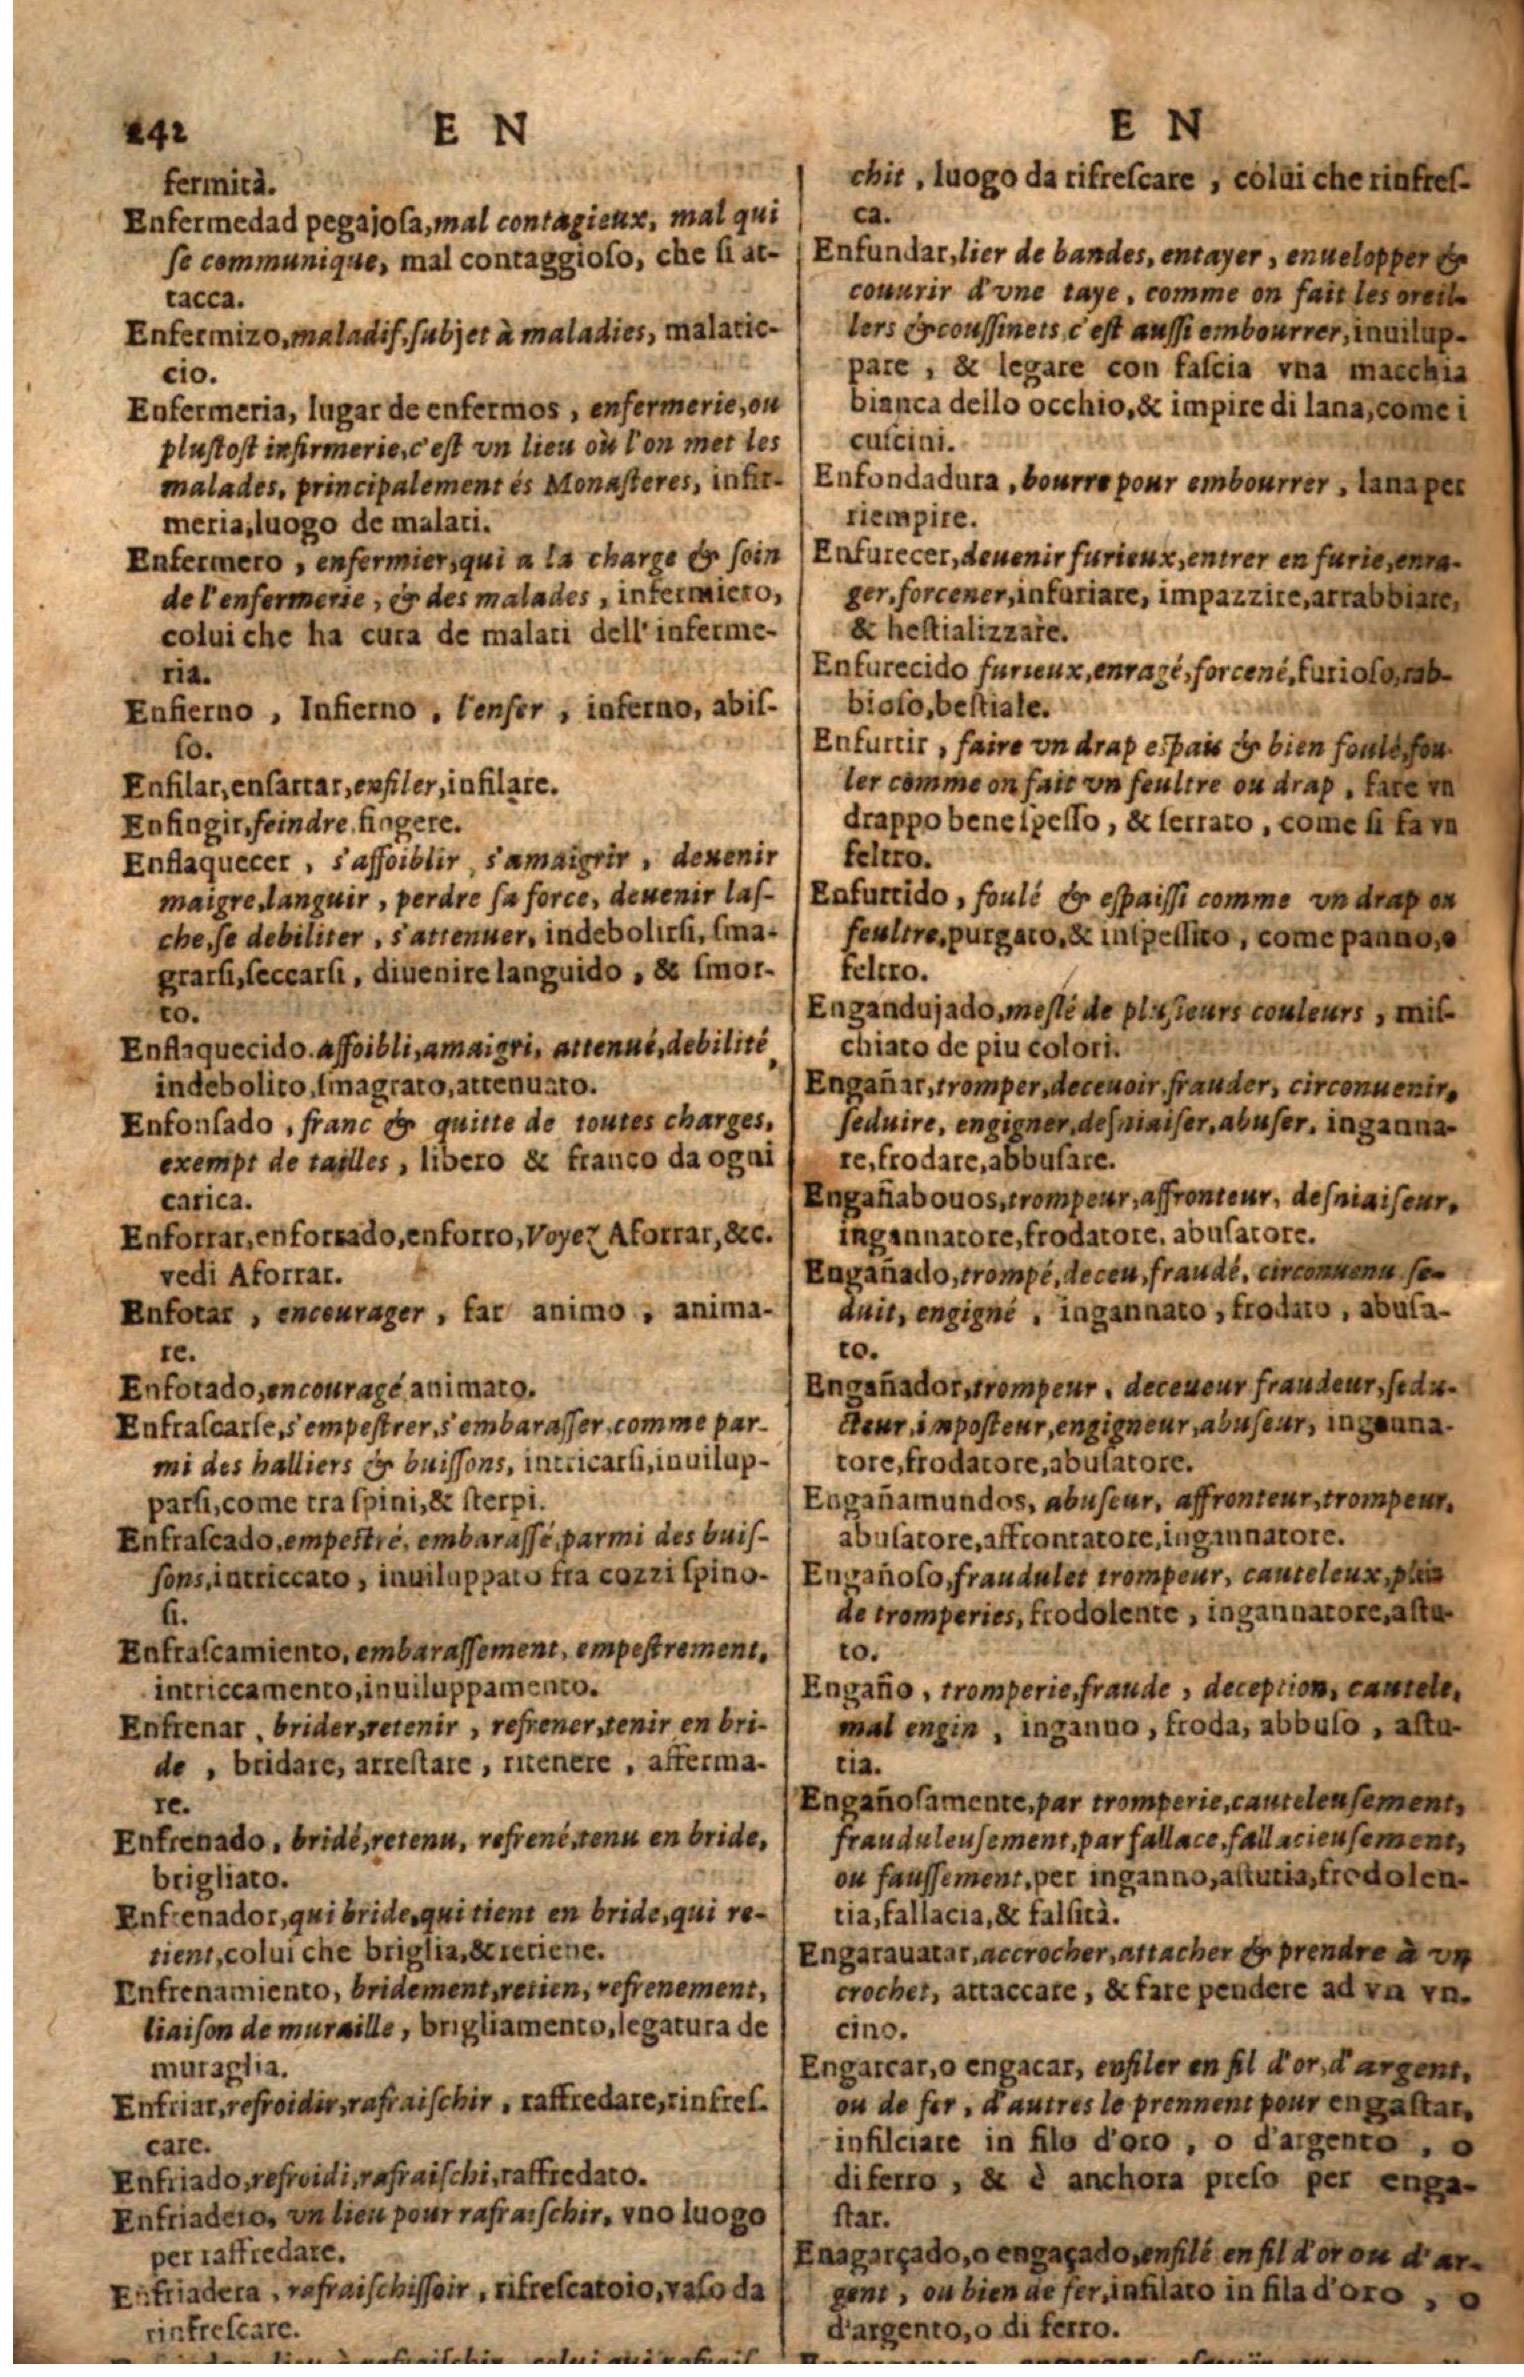 242 E N
fermità.
Enfermedad pegajosa, mal contagieux, mal qui
se communique, mal contaggioso, che si at-
tacca.
Enfermizo, maladif, subjet à maladies, malatic-
cio.
Enfermeria, lugar de enfermos, enfermerie, ou
plustost infirmerie, c'est vn lieu où l'on met les
malades, principalement és Monasteres, infir-
meria, luogo de malati.
Enfermero, enfermier, qui a la charge & soin
de l'enfermerie, & des malades, infermiero,
colui che ha cura de malati dell'inferme-
ria.
Enfierno, Infierno, l'enfer, inferno, abis-
so.
Enfilar, ensartar, enfiler, infilare.
Enfingir, feindre, fingere.
Enflaquecer, s'affoiblir, s'amaigrir, deuenir
maigre, languir, perdre sa force, deuenir las-
che, se debiliter, s'attenuer, indebolirsi, sma-
grarsi, seccarsi, diuenire languido, & smor-
to.
Enflaquecido. affoibli, amaigri, attenué, debilité,
indebolito, smagrato, attenuato.
Enfonsado, franc & quitte de toutes charges,
exempt de tailles, libero & franco da ogni
carica.
Enforrar, enforrado, enforro, Voyez Aforrar, &c.
vedi Aforrar.
Enfotar, encourager, far animo, anima-
re.
Enfotado, encouragé animato.
Enfrascarse, s'empestrer, s'embarasser, comme par-
mi des halliers & buissons, intricarsi, inuilup-
parsi, come tra spini, & sterpi.
Enfrascado, empestré, embarassé, parmi des buis-
sons, intriccato, inuiluppato fra cozzi spino-
si.
Enfrascamiento, embarassement, empestrement,
intriccamento, inuiluppamento.
Enfrenar, brider, retenir, refrener, tenir en bri-
de, bridare, arrestare, ritenere, afferma-
re.
Enfrenado, bridé, retenu, refrené, tenu en bride,
brigliato.
Enfrenador, qui bride, qui tient en bride, qui re-
tient, colui che briglia, & retiene.
Enfrenamiento, bridement, retien, refrenement,
liaison de muraille, brigliamento, legatura de
muraglia.
Enfriar, refroidir, rafraischir, raffredare, rinfres-
care.
Enfriado, refroidi, rafraischi, raffredato.
Enfriadero, vn lieu pour rafraischir, vno luogo
per raffredare.
Enfriadera, rafraischissoir, rifrescatoio, vaso da
rinfrescare.
E N
chit, luogo da rifrescare, colui che rinfres-
ca.
Enfundar, lier de bandes, entayer, enuelopper &
couurir d'vne taye, comme on fait les oreil-
lers & coussinets, c'est aussi embourrer, inuilup-
pare, & legare con fascia vna macchia
bianca dello occhio, & impire di lana, come i
cuscini.
Enfondadura, bourre pour embourrer, lana per
riempire.
Enfurecer, deuenir furieux, entrer en furie, enra-
ger, forcener, infuriare, impazzire, arrabbiare,
& hestializzare.
Enfurecido furieux, enragé, forcené, furioso, rab-
bioso, bestiale.
Enfurtir, faire vn drap espais & bien foulé, fou-
ler comme on fait vn feultre ou drap, fare vn
drappo bene spesso, & serrato, come si fa vn
feltro.
Enfurtido, foulé & espaissi comme vn drap ou
feultre, purgato, & inspessito, come panno, o
feltro.
Engandujado, meslé de plusieurs couleurs, mis-
chiato de piu colori.
Engañar, tromper, deceuoir, frauder, circonuenir,
seduire, engigner, desniaiser, abuser, inganna-
re, frodare, abbusare.
Engañabouos, trompeur, affronteur, desniaiseur,
ingannatore, frodatore, abusatore.
Engañado, trompé, deceu, fraudé, circonuenu se-
duit, engigné, ingannato, frodato, abusa-
to.
Engañador, trompeur, deceueur fraudeur, sedu-
cteur, imposteur, engigneur, abuseur, inganna-
tore, frodatore, abusatore.
Engañamundos, abuseur, affronteur, trompeur,
abusatore, affrontatore, ingannatore.
Engañoso, fraudulet trompeur, cauteleux, plein
de tromperies, frodolente, ingannatore, astu-
to.
Engaño, tromperie, fraude, deception, cautele,
mal engin, inganno, froda, abbuso, astu-
tia.
Engañosamente, par tromperie, cauteleusement,
frauduleusement, par fallace, fallacieusement,
ou faussement, per inganno, astutia, frodolen-
tia, fallacia, & falsità.
Engarauatar, accrocher, attacher & prendre à vn
crochet, attaccare, & fare pendere ad vn vn-
cino.
Engarcar, o engacar, enfiler en fil d'or, d'argent,
ou de fer, d'autres le prennent pour engastar,
infilciare in filo d'oro, o d'argento, o
di ferro, & è anchora preso per enga-
star.
Enagarçado, o engaçado, enfilé en fil d'or ou d'ar-
gent, ou bien de fer, infilato in fila d'oro, o
d'argento, o di ferro.